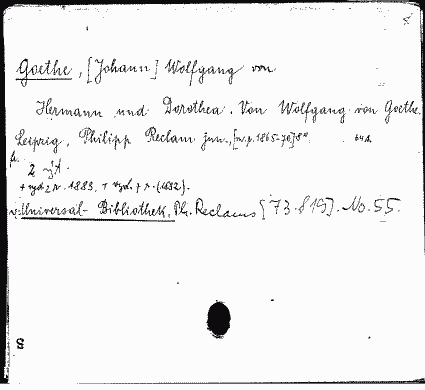 Goethe, [Johann] Wolfgang von
Hermann und Dorothea. Von Wolfgang von Goethe.
Leipzig, Philipp Reclam jun., [n.p. 1865-76] 8° 64 s.
2 ryt.
+ wyd z r. 1883. + wyd. z r. (1892).
Universal-Bibliothek, Ph. Reclams [73.819]. No. 55.